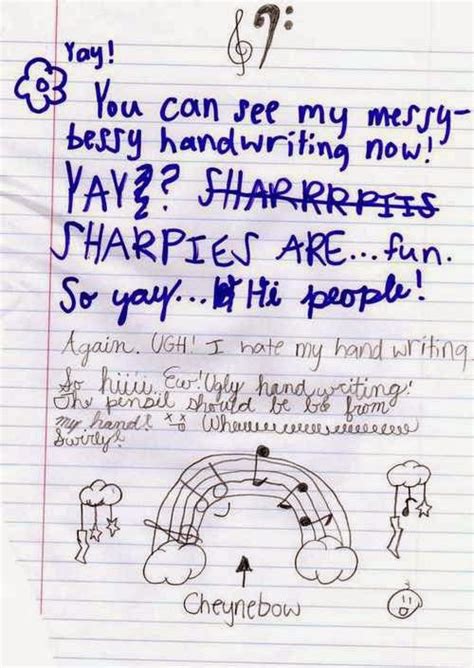 Yay!
You can see my messy-
bessy handwriting now!
YAY?? SHARRRPIIS
SHARPIES ARE... fun.
So yay... Hi people!
Again. UGH! I hate my hand writing
So hiiii. Ew! Ugly hand writing!
The pensil should be be from
my hand!
Swirly!
Cheynebow